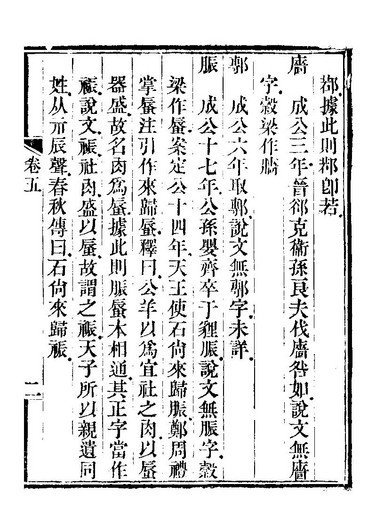 鄀據此則鄀卽若
廧 成公三年晉郤克衞孫良夫伐廧咎如說文無廧
字穀梁作牆
鄟 成公六年取鄟說文無鄟字未詳
脤 成公十七年公孫嬰齊卒于貍脤說文無脤字穀
梁作蜃案定公十四年天王使石尙來歸脤鄭周禮
掌蜃注引作來歸蜃釋曰公羊以爲宜社之肉以蜃
器盛故名肉爲蜃據此則脤蜃木相通其正字當作
祳說文祳社肉盛以蜃故謂之祳天子所以親遺同
姓从示辰聲春秋傳曰石尙來歸祳
卷五 二